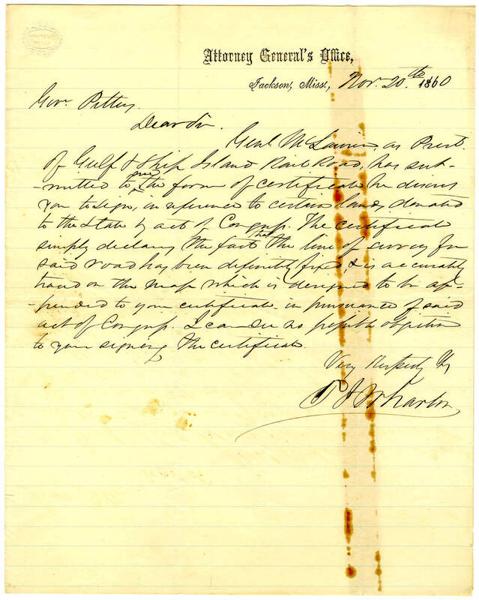 Attorney General's Office,
Jackson, Miss, Nov. 20th 1860
Gov. Pettus
Dear Sir
Genl McLaurin, as Prest
of Gulf & Ship Island Rail Road, has sub-
-mitted to me the form of certificate he desires
you to sign, in reference to certain lands donated
to the State by act of Congress. The certificate
simply declares the fact that the line of survey for
said road has been definitely fixed, & is accurately
traced on the map which is designed to be ap-
-pended to your certificate, in pursuance of said
act of Congress. I can see no possible objection
to your signing the certificate
Very Respectfully
T J Wharton